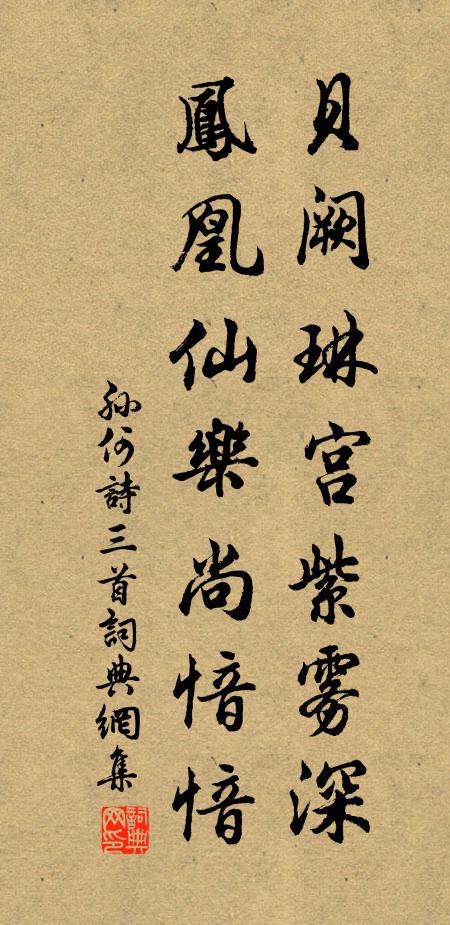 貝阙琳宫紫雾深
鳳凰仙樂尚愔愔
孙何詩三首詞典網集
詞典
网印